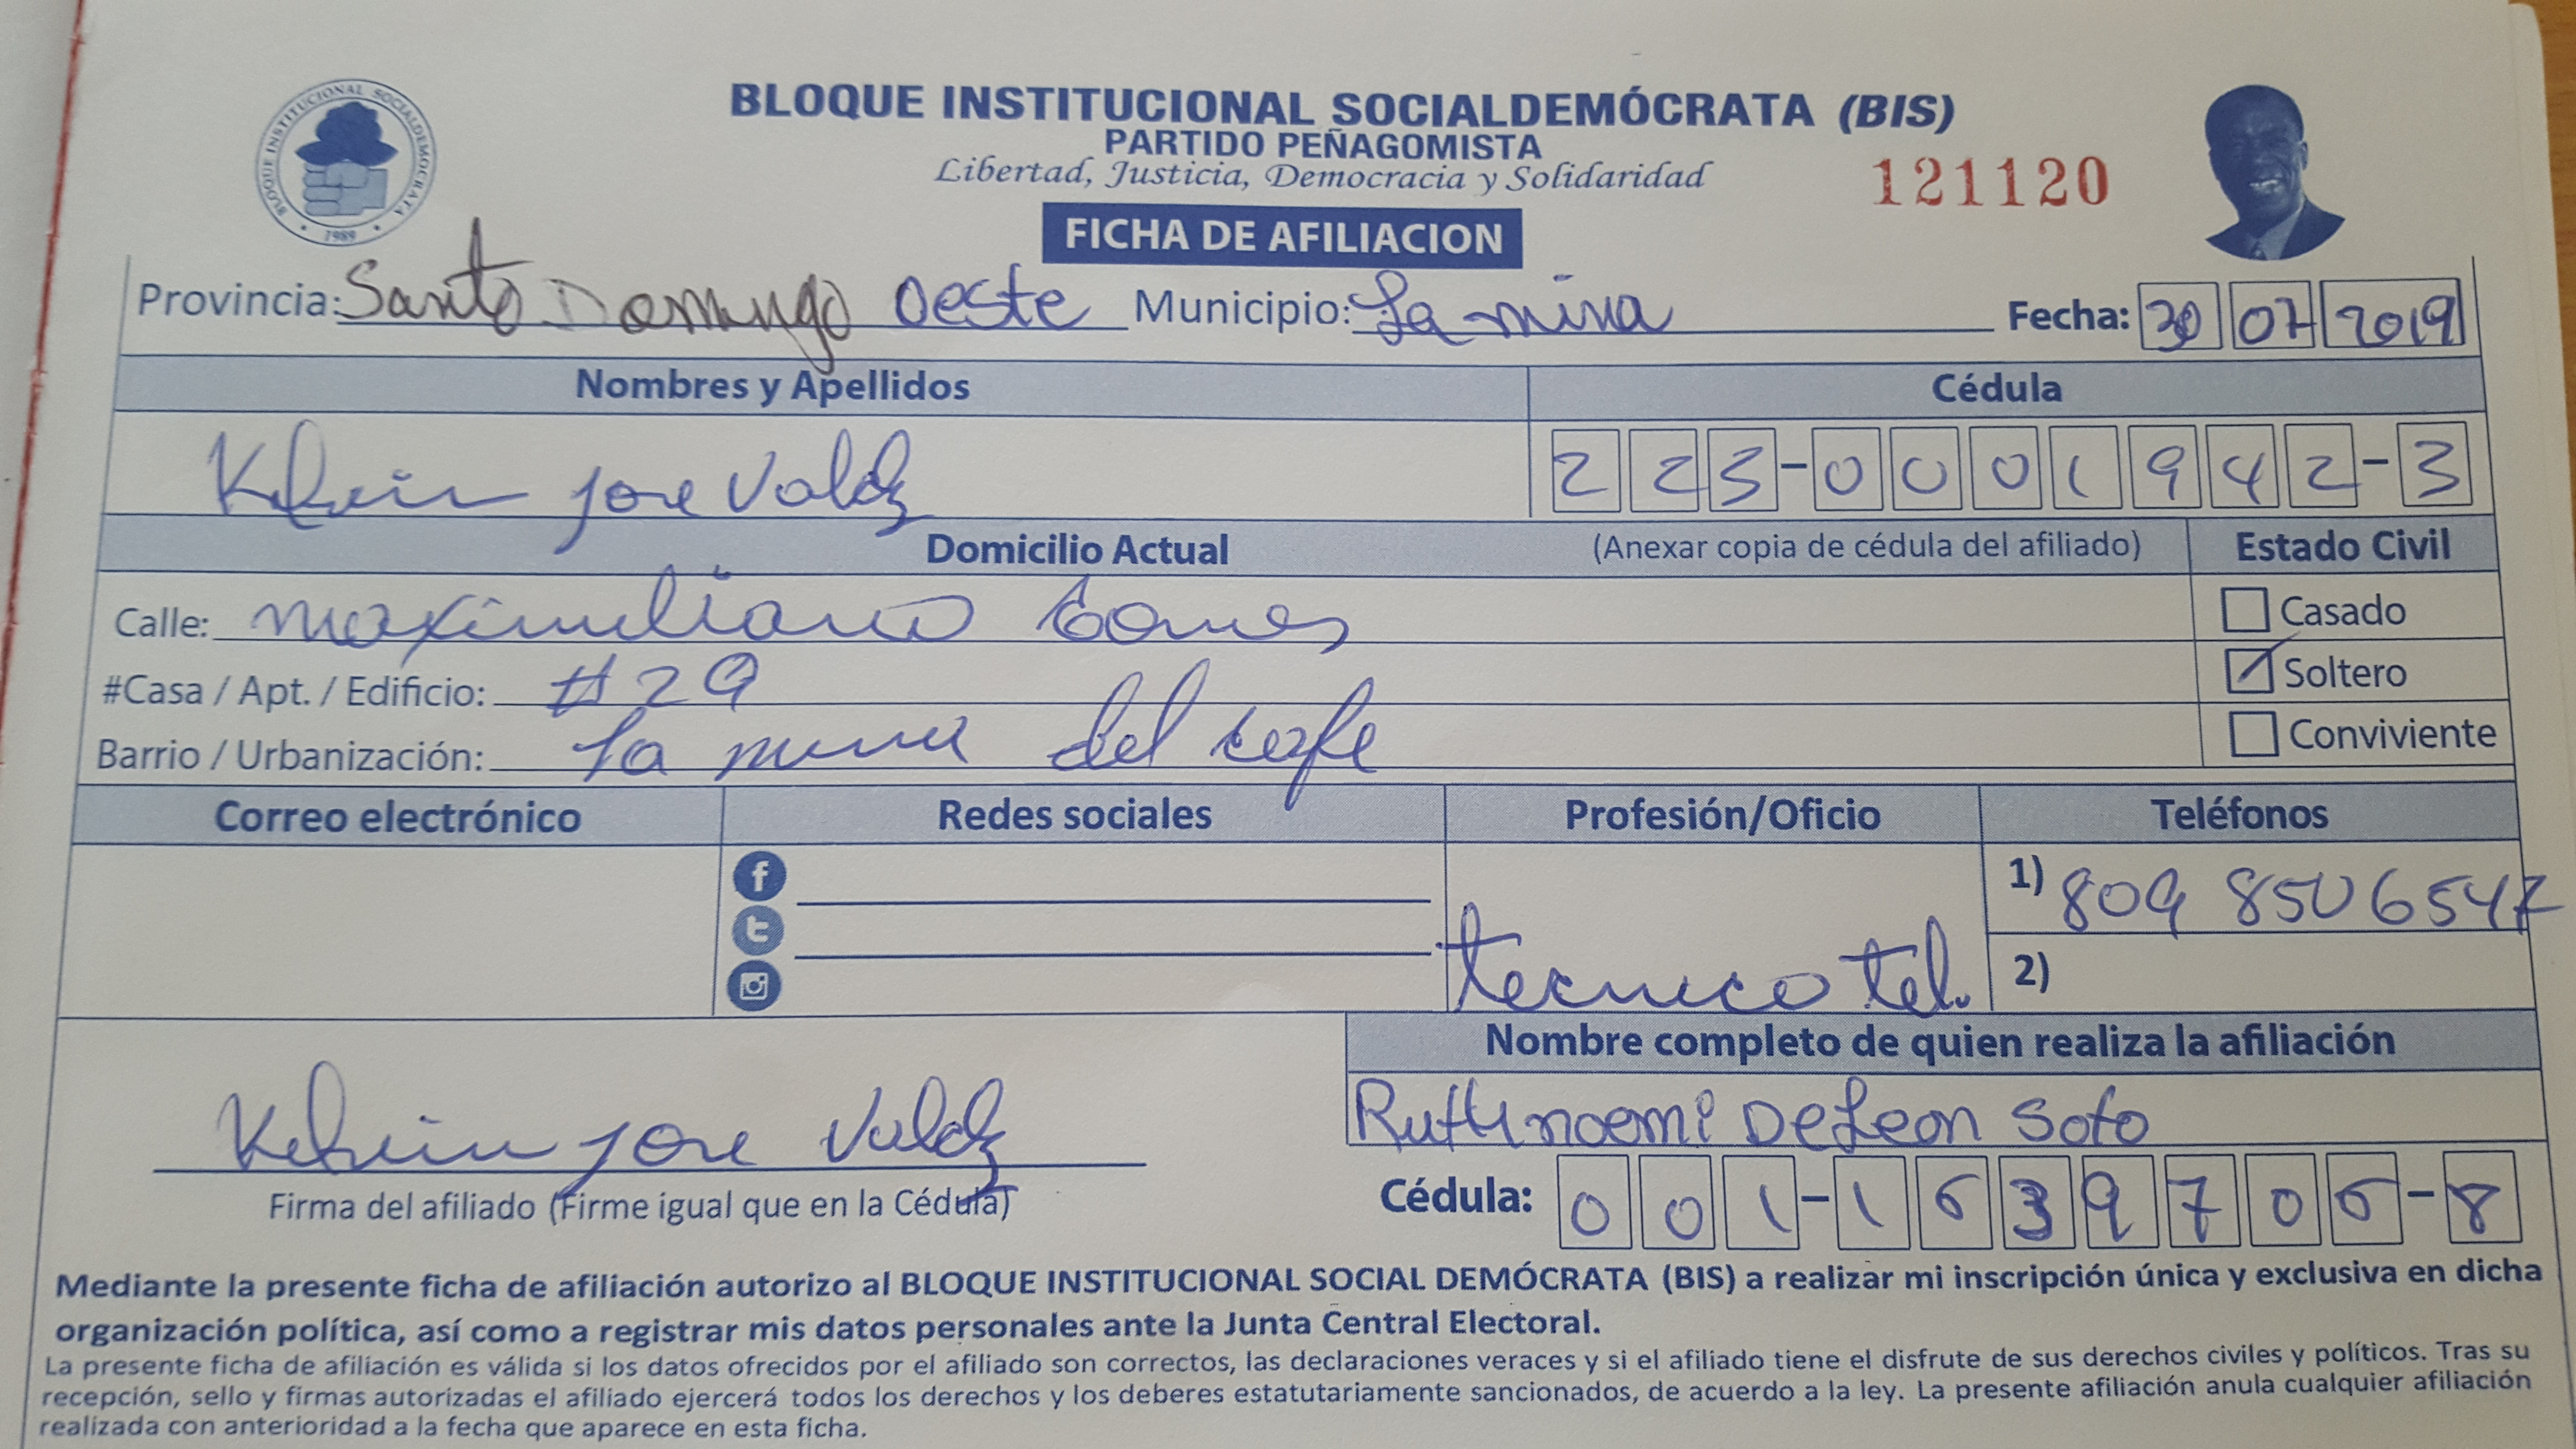 BLOQUE INSTITUCIONAL SOCIALDEMÓCRATA (BIS)
PARTIDO PEÑAGOMISTA
Libertad, Justicia, Democracia y Solidaridad
121120
BLOQUE INSTITUCIONAL SOCIALDEMOCRATA
1989
FICHA DE AFILIACION
Provincia: Santo Domingo Oeste Municipio: La mina Fecha: 30 07 2019
Nombres y Apellidos Cédula
Kelvin jose Valdez 223-0001942-3
Domicilio Actual (Anexar copia de cédula del afiliado) Estado Civil
Calle: maximiliano Gomes Casado
#Casa / Apt. / Edificio: #29 Soltero
Barrio / Urbanización: La mina del cafe Conviviente
Correo electrónico Redes sociales Profesión/Oficio Teléfonos
1) 809 8506547
tecnico tel. 2)
Nombre completo de quien realiza la afiliación
Ruth noemi De Leon Soto
Kelvin jose Valdez
Firma del afiliado (Firme igual que en la Cédula) Cédula: 001-1639706-8
Mediante la presente ficha de afiliación autorizo al BLOQUE INSTITUCIONAL SOCIAL DEMÓCRATA (BIS) a realizar mi inscripción única y exclusiva en dicha
organización política, así como a registrar mis datos personales ante la Junta Central Electoral.
La presente ficha de afiliación es válida si los datos ofrecidos por el afiliado son correctos, las declaraciones veraces y si el afiliado tiene el disfrute de sus derechos civiles y políticos. Tras su
recepción, sello y firmas autorizadas el afiliado ejercerá todos los derechos y los deberes estatutariamente sancionados, de acuerdo a la ley. La presente afiliación anula cualquier afiliación
realizada con anterioridad a la fecha que aparece en esta ficha.